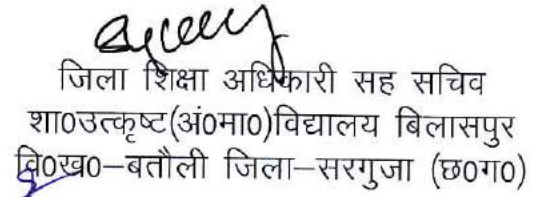 जिला शिक्षा अधिकारी सह सचिव
शा0उत्कृष्ट(अं0मा0)विद्यालय बिलासपुर
वि0ख0–बतौली जिला–सरगुजा (छ0ग0)